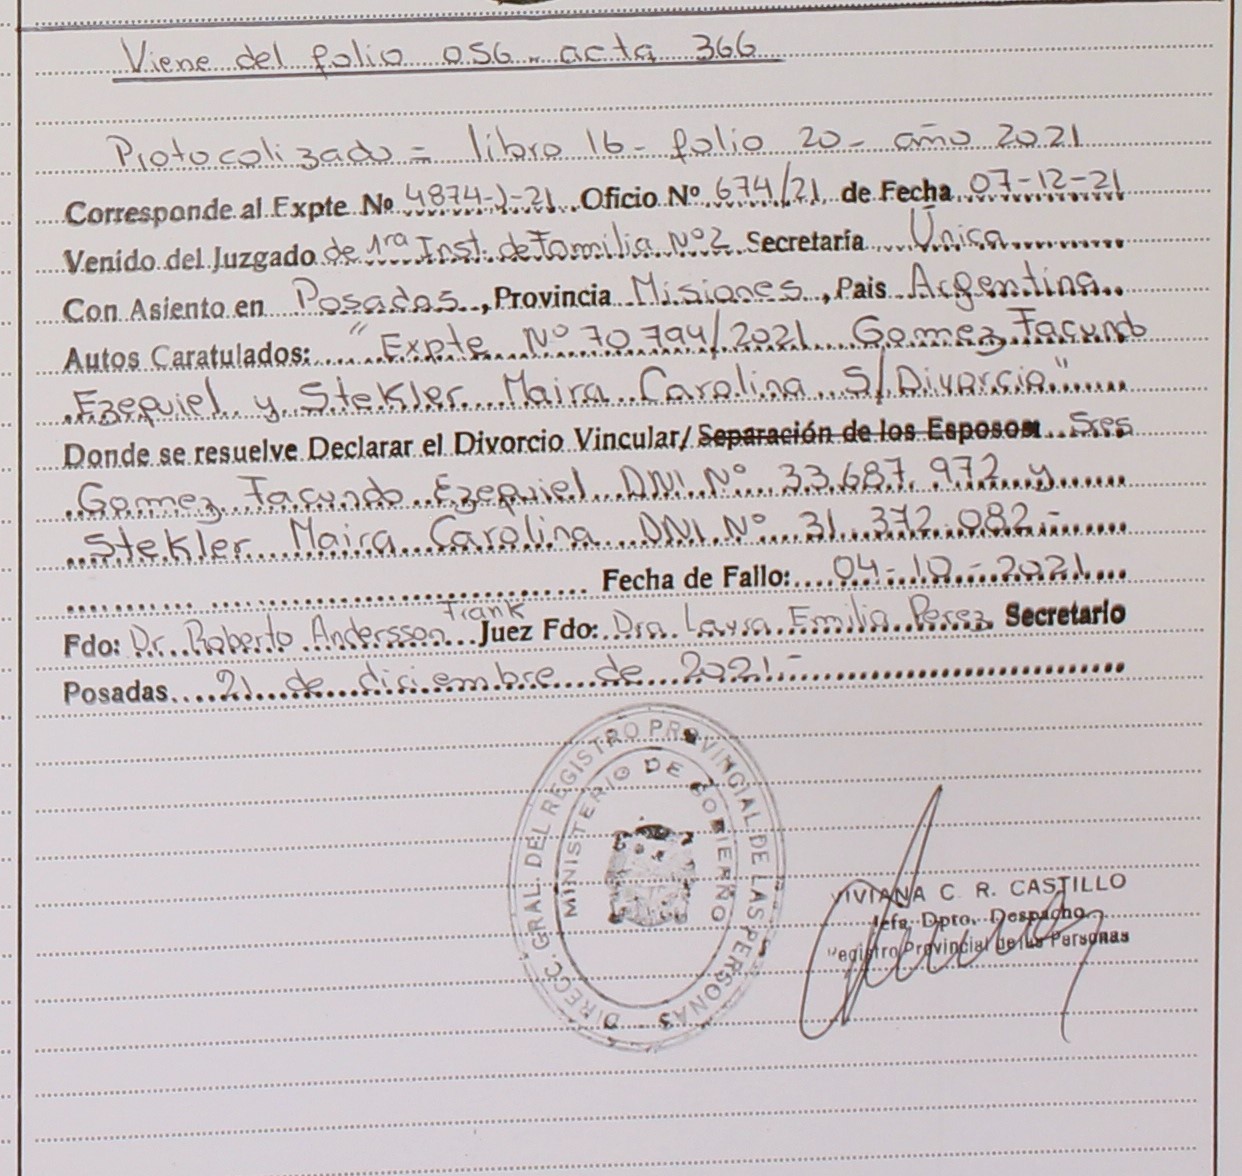 Viene del folio 056 - acta 366
Protocolizado = libro 16 - folio 20 - año 2021
Corresponde al Expte Nº 4874-J-21 Oficio Nº 674/21 de Fecha 07-12-21
Venido del Juzgado de 1ra Inst. de Familia Nº2 Secretaría Única
Con Asiento en Posadas, Provincia Misiones, Pais Argentina
Autos Caratulados: "Expte Nº 70794/2021 Gomez Facundo
Ezequiel y Stekler Maira Carolina S/Divorcio"
Donde se resuelve Declarar el Divorcio Vincular/ Separación de los Esposos Sres
Gomez Facundo Ezequiel DNI Nº 33.687.972 y
Stekler Maira Carolina DNI Nº 31.372.082.-
Fecha de Fallo: 04-10-2021
Fdo: Dr. Roberto Andersson Frank Juez Fdo: Dra. Laura Emilia Perez Secretario
Posadas 21 de diciembre de 2021.-
DIRECC. GRAL. DEL REGISTRO PROVINCIAL DE LAS PERSONAS
MINISTERIO DE GOBIERNO
VIVIANA C. R. CASTILLO
Jefa Dpto. Despacho
Registro Provincial de las Personas